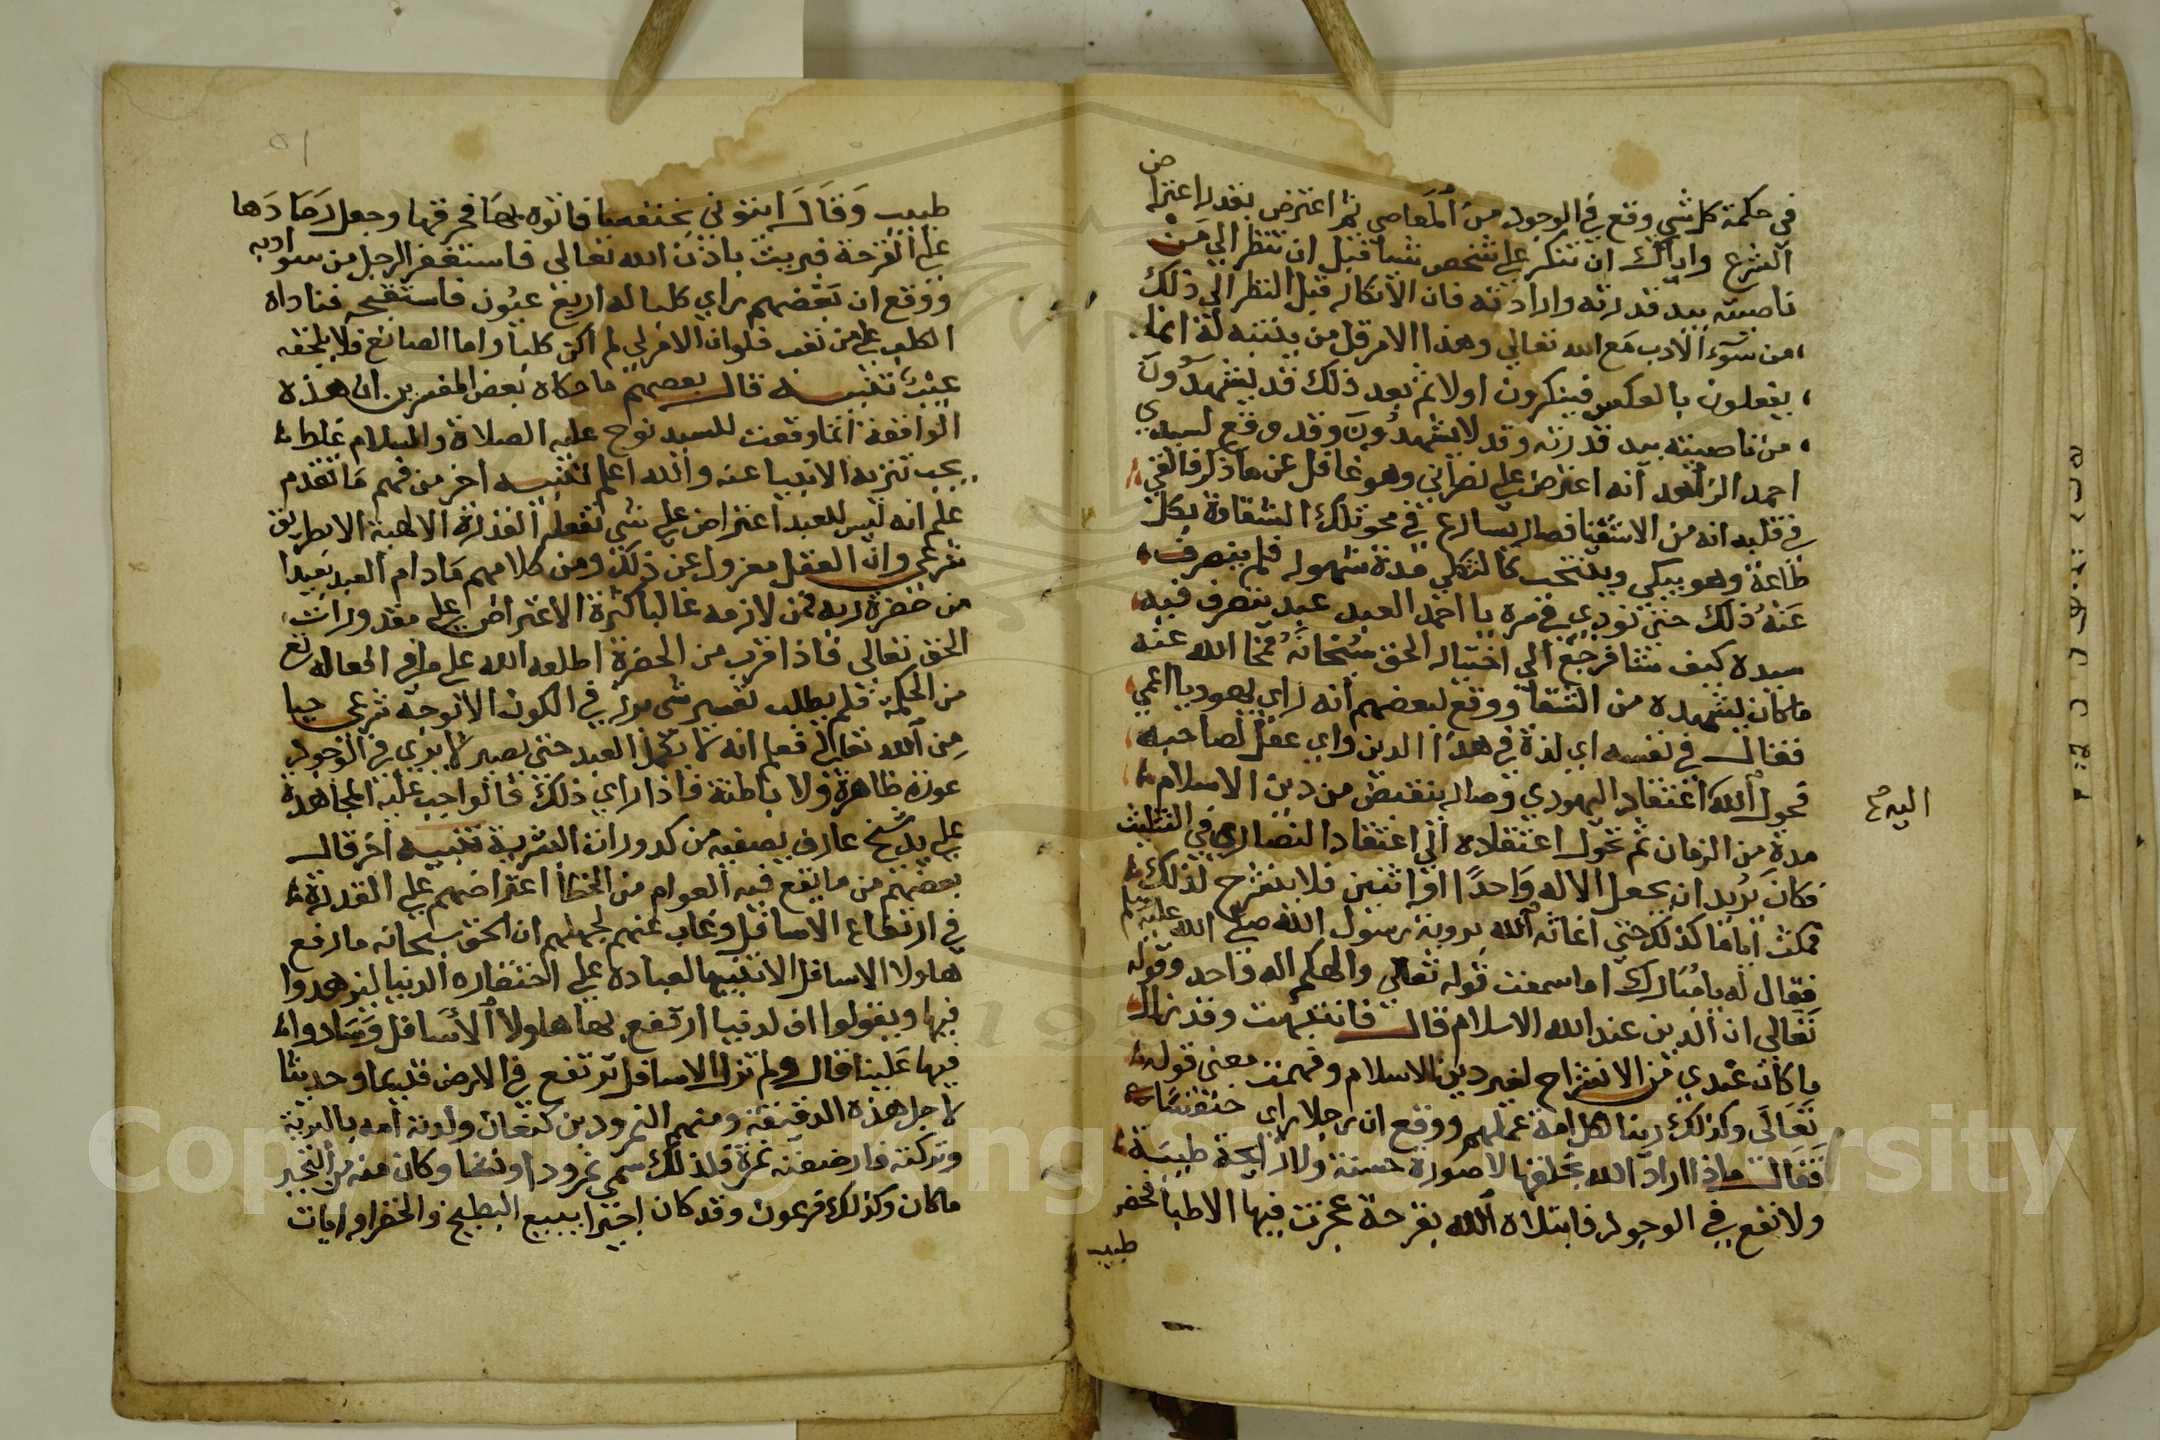 في حكمة كل شي وقع في الوجود من المعاصي ثم اعترض بقدر اعتراض
الشرع واياك ان تنكر علي شخص شيا قبل ان تنظر الي من
ناصيته بيد قدرته وارادته فان الانكار قبل النظر الي ذلك
من سوء الادب مع الله تعالي وهذا الامر قل من ينتبه له انما
يفعلون بالعكس فينكرون اولا ثم بعد ذلك قد يشهدون
من ناصيته بيد قدرته وقد لا يشهدون وقد وقع لسيدي
احمد الزاهد انه اعترض علي نصراني وهو غافل عن ما ذكر فالقي
في قلبه انه من الاشقيا فصار يسارع في محو تلك الشقاوة بكل
طاعة وهو يبكي وينتحب كالثكلي مدة شهور فلم ينصرف
عنه ذلك حتي نودي في مرة يا احمد العبد عبد يتصرف فيه
سيده كيف شا فرجع الي اختيار الحق سبحانه فمحا الله عنه
ما كان يشهده من الشقا ووقع لبعضهم انه راي يهوديا اعمي
فقال في نفسه اي لذة في هذا الدين واي عقل لصاحبه
فحول الله اعتقاد اليهودي وصار ينقبض من دين الاسلام
اليه صح
مدة من الزمان ثم تحول اعتقاده الي اعتقاد النصاري في التثليث
فكان يريد ان يجعل الاله واحدا او اثنين فلا ينشرح لذلك
فمكث اياما كذلك حتي اغاثه الله بروية رسول الله صلي الله عليه وسلم
فقال له يا مبارك اما سمعت قوله تعالي والهكم اله واحد وقوله
تعالي ان الدين عند الله الاسلام قال فانتبهت وقد زال
ما كان عندي من الانشراح لغير دين الاسلام وفهمت معني قوله
تعالي وكذلك زينا لكل امة عملهم ووقع ان رجلا راي خنفسا
فقال ماذا اراد الله بخلقها لا صورة حسنة ولا رايحة طيبة
ولا نفع في الوجود فابتلاه الله بقرحة عجزت فيها الاطبا فحضر
طبيب
٥١
طبيب وقال ايتوني بخنفسا فاتوه بها فحرقها وجعل رمادها
علي القرحة فبريت باذن الله تعالي فاستغفر الرجل من سو ادبه
ووقع ان بعضهم راي كلبا له اربع عيون فاستقبحه فناداه
الكلب علي من تعب فلو ان الامر لي لم اكن كلبا واما الصانع فلا يلحقه
عيب تنبيه قال بعضهم ما حكاه بعض المفسرين ان هذه
الواقعة انما وقعت للسيد نوح عليه الصلاة والسلام غلط
يجب تنزيه الانبيا عنه والله اعلم تنبيه اخر من فهم ما تقدم
علم انه ليس للعبد اعتراض علي شي تفعله القدرة الالهية الا بطريق
شرعي وان العقل معزول عن ذلك ومن كلامهم ما دام العبد بعيدا
من حضرة ربه فمن لازمه غالبا كثرة الاعتراض علي مقدورات
الحق تعالي فاذا قرب من الحضرة اطلعه الله علي ما في افعاله تع
من الحكمة فلم يطلب تغيير شي برز في الكون الا بوجه شرعي حيا
من الله تعالي فعلم انه لا يكمل العبد حتي يصير لا يري في الوجود
عورة ظاهرة ولا باطنة فاذا راي ذلك فالواجب عليه المجاهدة
علي يد شيخ عارف يصفيه من كدورات البشرية تنبيه اخر قال
بعضهم من ما يقع فيه العوام من الخطا اعتراضهم علي القدرة
في ارتفاع الاسافل وغاب عنهم لجهلهم ان الحق سبحانه ما رفع
هاولا الاسافل الا تنبيها لعباده علي احتقاره الدنيا ليزهدوا
فيها ويقولوا ان لدنيا ارتفع بها هاولا الاسافل وسادوا
فيها علينا قال ولم تزل الاسافل ترتفع في الارض قديما وحديثا
لاجل هذه الدقيقة ومنهم النمرود بن كنعان ولدته امه بالبرية
وتركته فارضعته نمرة فلذلك سمي نمرود او نشا وكان منه من التجبر
ما كان وكذلك فرعون وقد كان اجيرا يبيع البطيخ والخضراوايات